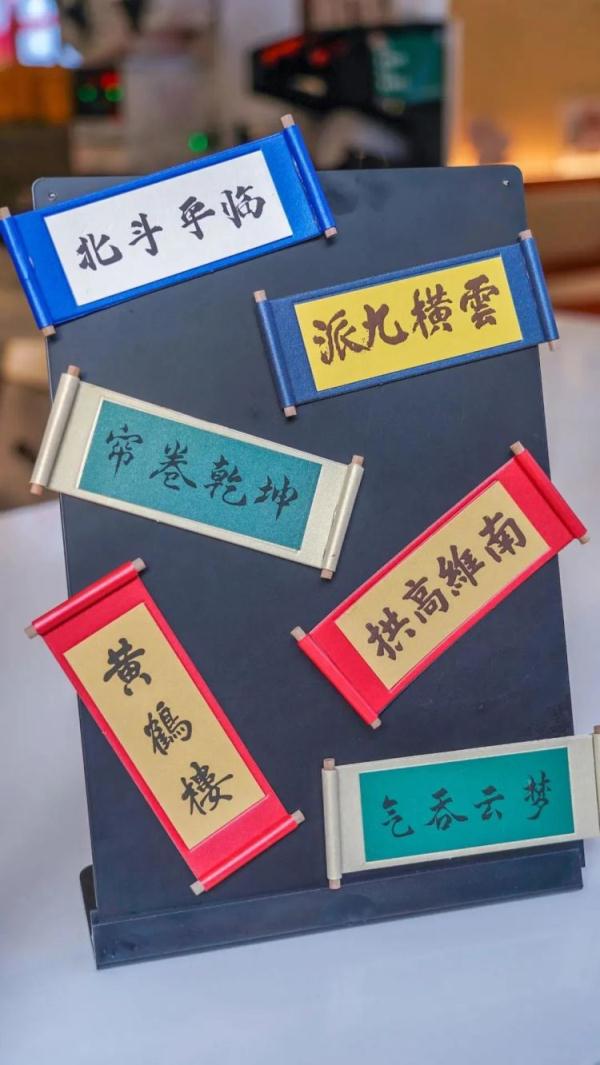 北斗平临
派九横雲
帘卷乾坤
拱高維南
黄鶴楼
气吞云梦